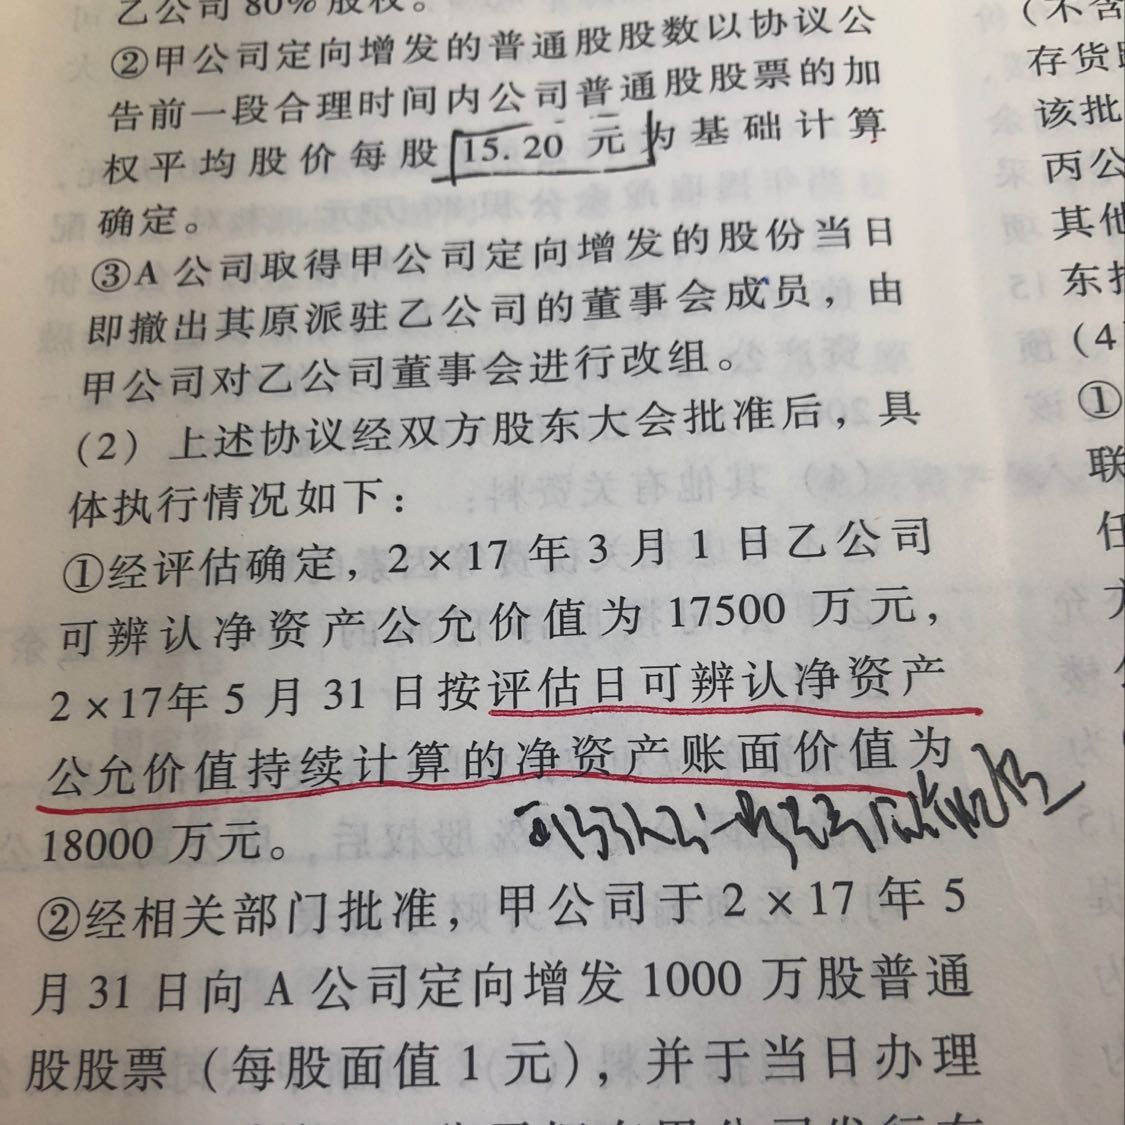 乙公司80%股权。
②甲公司定向增发的普通股股数以协议公
告前一段合理时间内公司普通股股票的加
权平均股价每股15.20元为基础计算
确定。
③A公司取得甲公司定向增发的股份当日
即撤出其原派驻乙公司的董事会成员，由
甲公司对乙公司董事会进行改组。
(2) 上述协议经双方股东大会批准后，具
体执行情况如下：
①经评估确定，2×17年3月1日乙公司
可辨认净资产公允价值为17500万元，
2×17年5月31日按评估日可辨认净资产
公允价值持续计算的净资产账面价值为
18000万元。
②经相关部门批准，甲公司于2×17年5
月31日向A公司定向增发1000万股普通
股股票（每股面值1元），并于当日办理
(不含
存货
该批
丙公
其他
东
(4
①
联
任